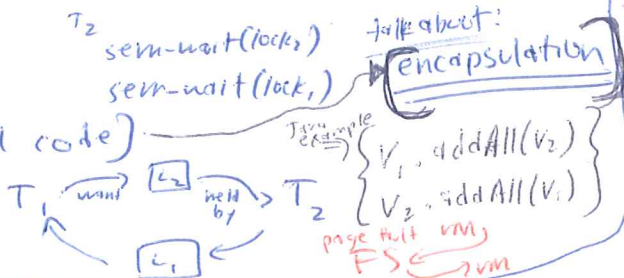 T2
sem-wait(lock2)
sem-wait(lock1)
talk about:
encapsulation
code)
Java example
V1.addAll(V2)
V2.addAll(V1)
T1 want L2 held by T2
L1
page fault VM
FS VM